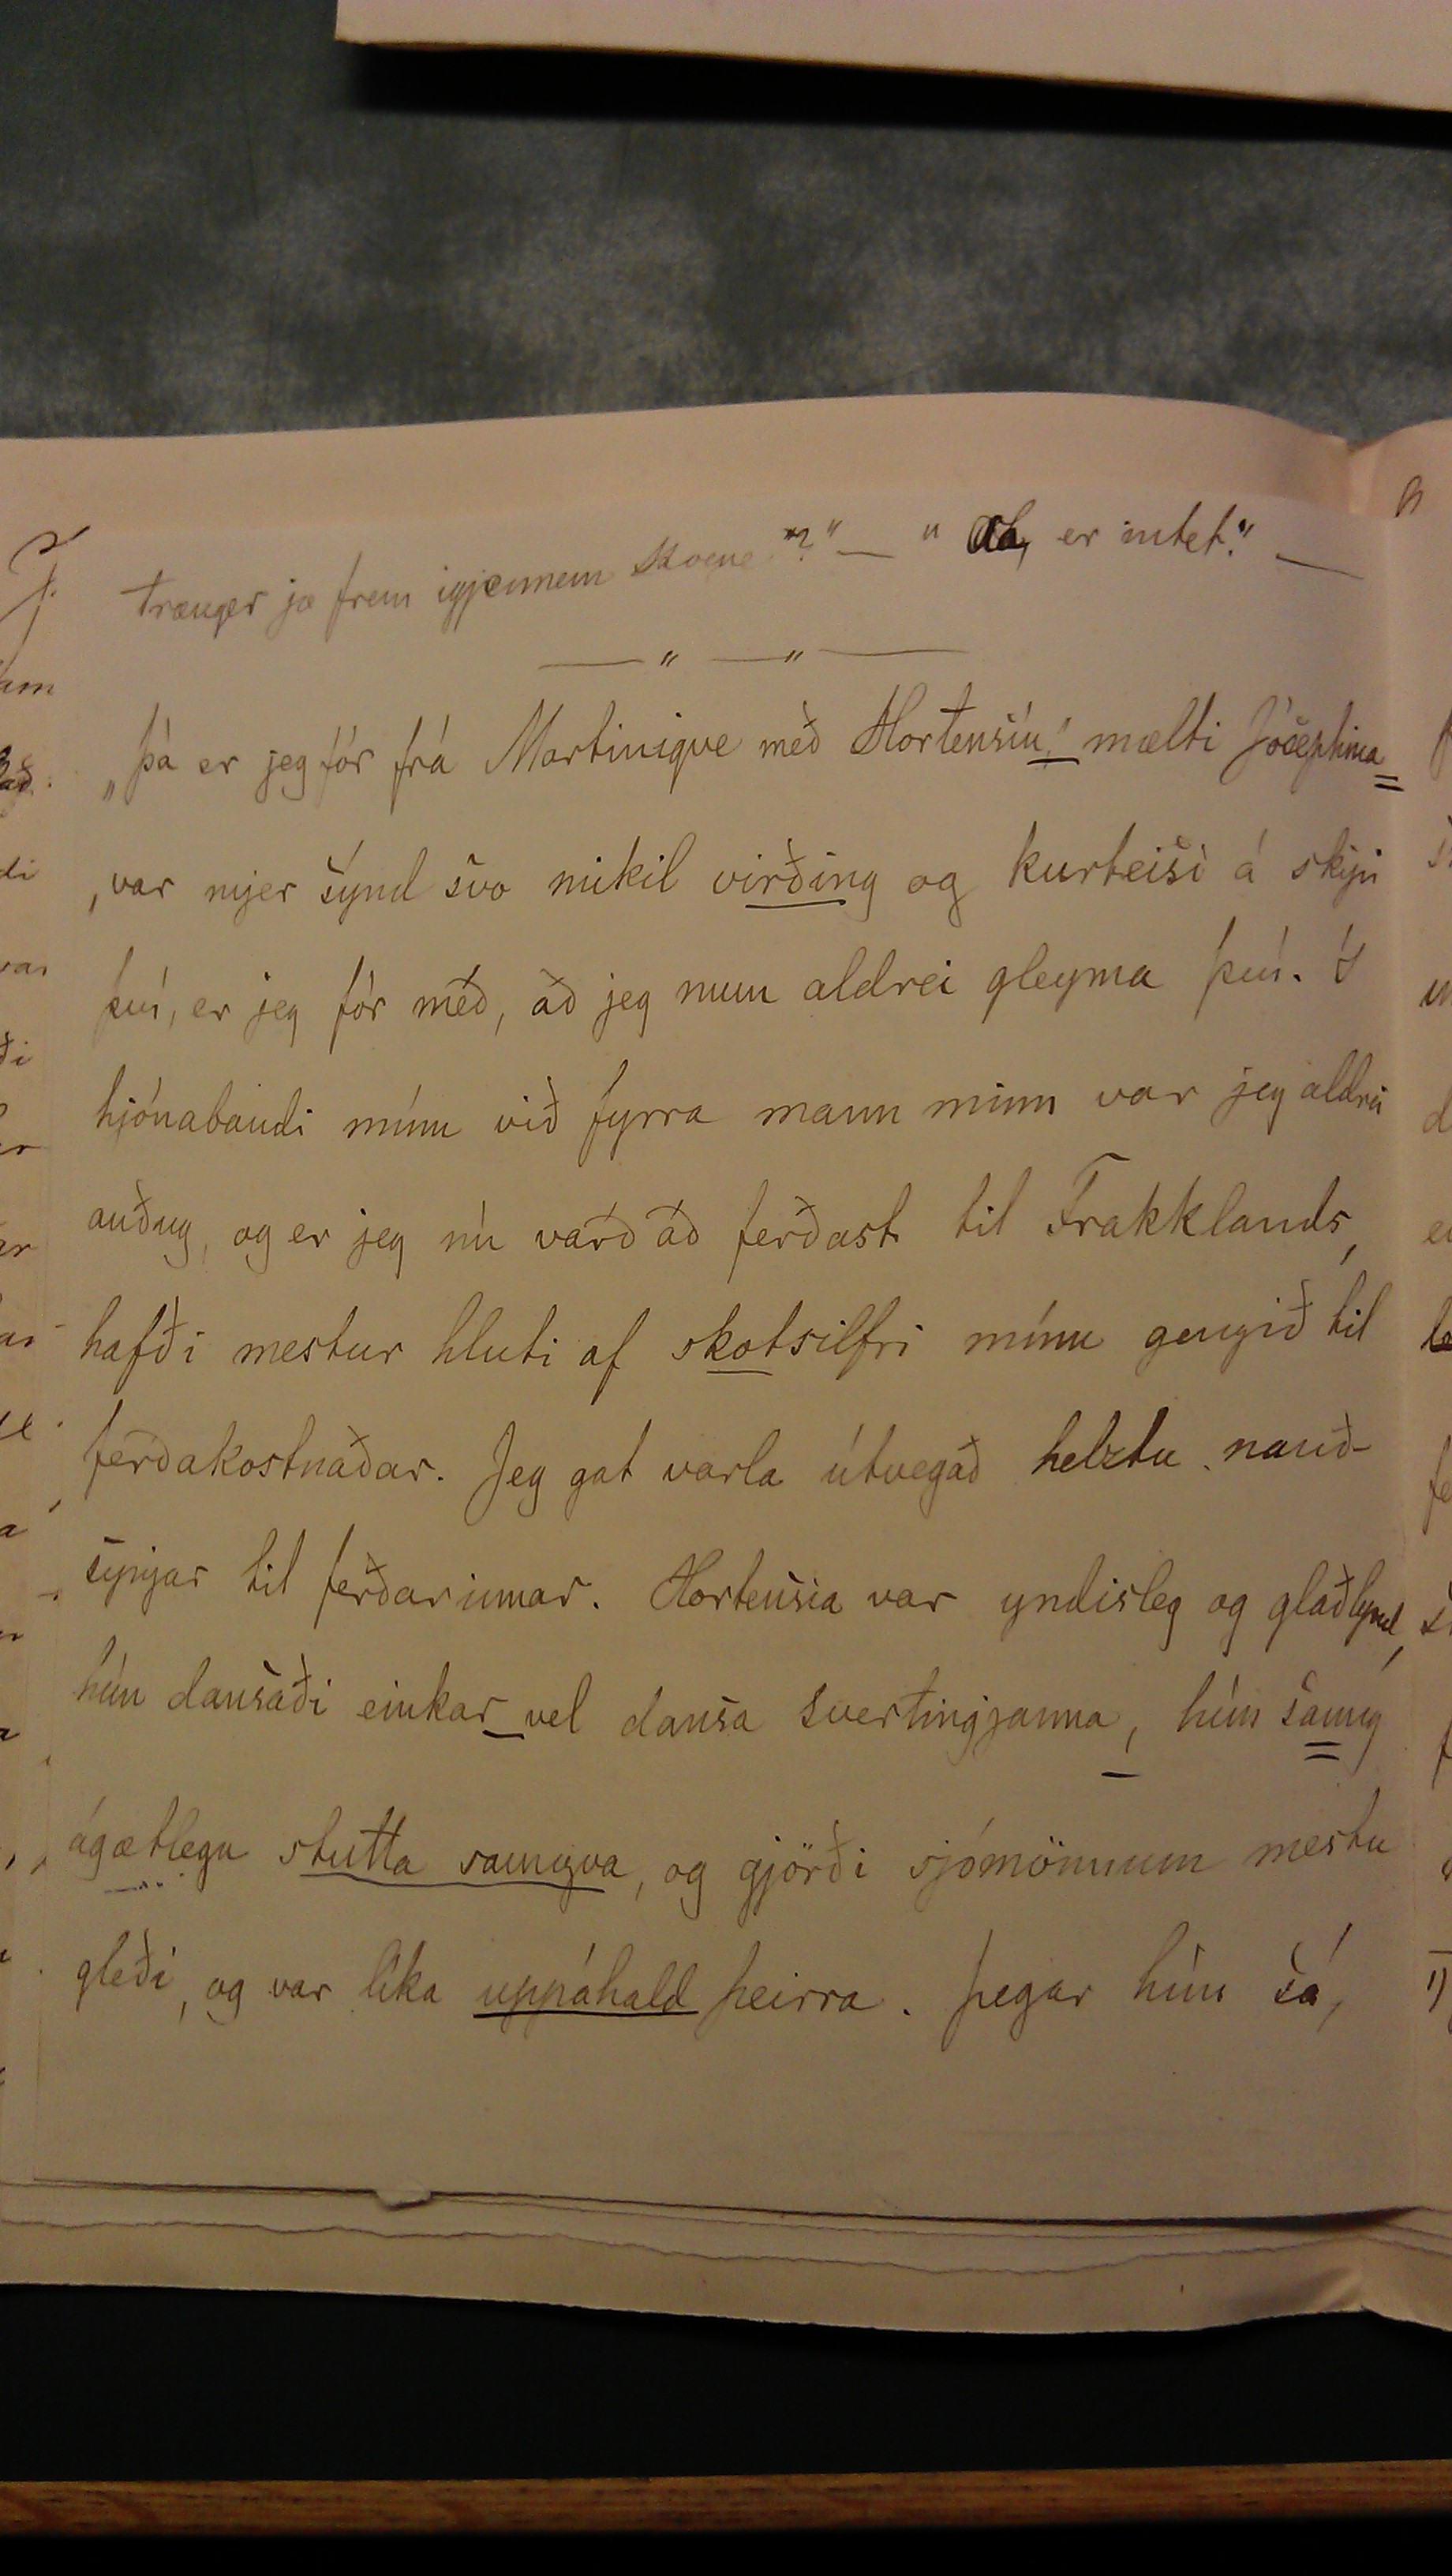 trænger jo frem igjennem skoene"?" — " Aa, er intet." —
— " — " —
„Þá er jeg fór frá Martinique með Hortensíu," mælti Jósephina
, var mjer sýnd svo mikil virðing og kurteisi á skipi
því, er jeg fór með, að jeg mun aldrei gleyma því. Í
hjónabandi mínu við fyrra mann minn var jeg aldrei
auðug, og er jeg nú varð að ferðast til Frakklands,
hafði mestur hluti af skotsilfri mínu gengið til
ferðakostnaðar. Jeg gat varla útvegað helztu nauð-
synjar til ferðarinnar. Hortensia var yndisleg og glaðlynd,
hún dansaði einkar vel dansa svertingjanna, hún saung
ágætlega stutta saungva, og gjörði sjómönnum mestu
gleði, og var líka uppáhald þeirra. Þegar hún sá,